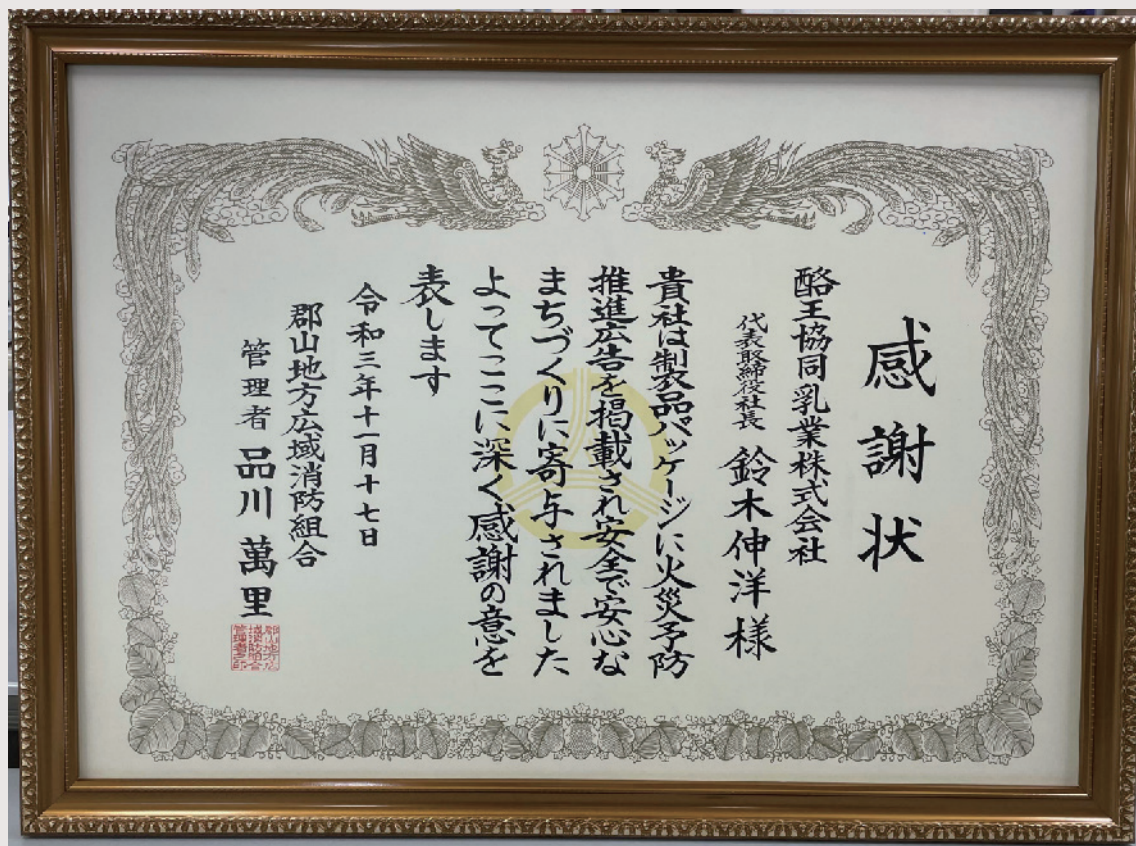 感謝状
酪王協同乳業株式会社
代表取締役社長 鈴木伸洋様
貴社は製品パッケージに火災予防
推進広告を掲載され安全で安心な
まちづくりに寄与されました
よってここに深く感謝の意を
表します
令和三年十一月十七日
郡山地方広域消防組合
管理者 品川萬里
郡山地方広
域消防組合
管理者之印